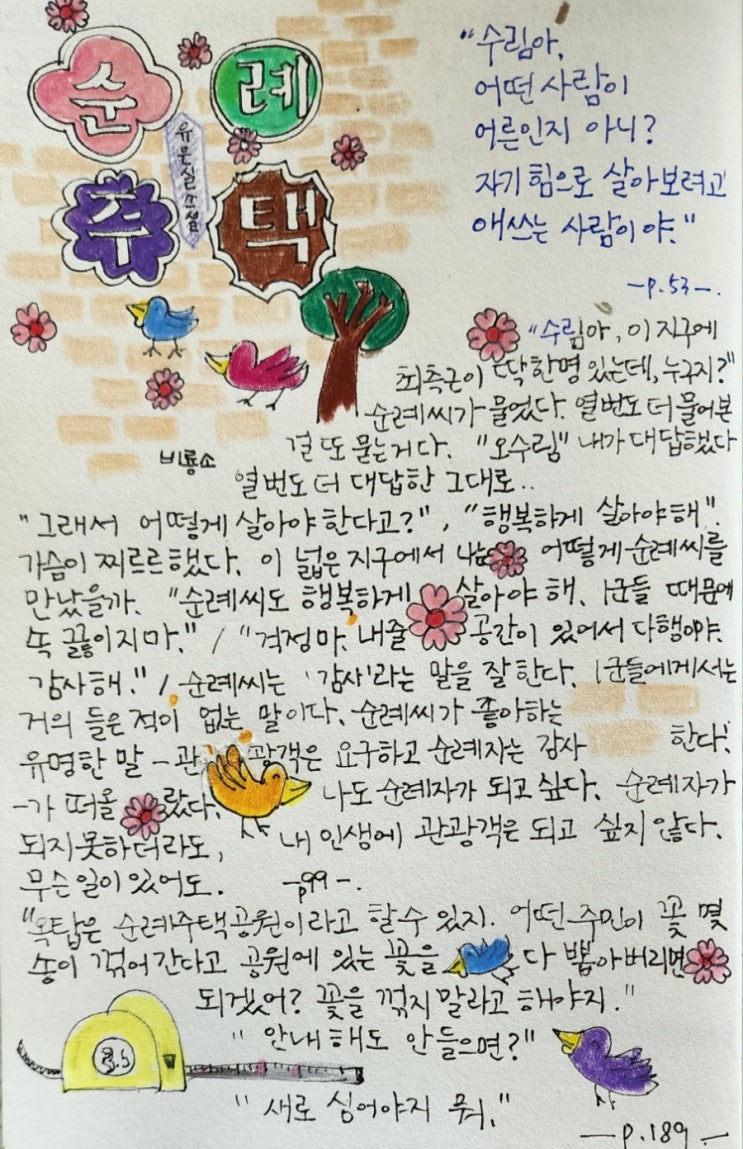 순례
주택
유은실 소설
비룡소
"수림아,
어떤 사람이
어른인지 아니?
자기 힘으로 살아보려고
애쓰는 사람이야."
-p.53-.
"수림아, 이 지구에
최측근이 딱 한명 있는데, 누구지?"
순례씨가 물었다. 열번도 더 물어본
걸 또 묻는거다. "오수림" 내가 대답했다
열번도 더 대답한 그대로..
"그래서 어떻게 살아야한다고?", "행복하게 살아야해".
가슴이 찌르르했다. 이 넓은 지구에서 나는 어떻게 순례씨를
만났을가. "순례씨도 행복하게 살아야 해. 1군들 때문에
속 끓이지마." / "걱정마. 내줄 공간이 있어서 다행이야.
감사해." / 순례씨는 '감사'라는 말을 잘 한다. 1군들에게서는
거의 들은적이 없는 말이다. 순례씨가 좋아하는
유명한 말 - 관광객은 요구하고 순례자는 감사 한다.
-가 떠올랐다. 나도 순례자가 되고싶다. 순례자가
되지못하더라도, 내 인생에 관광객은 되고 싶지 않다.
무슨일이 있어도. -p99-.
"옥탑은 순례주택공원이라고 할수 있지. 어떤 주민이 꽃 몇
송이 꺾어 간다고 공원에 있는 꽃을 다 뽑아버리면
되겠어? 꽃을 꺾지 말라고 해야지."
"안내해도 안들으면?"
"새로 심어야지 뭐."
-p.189-